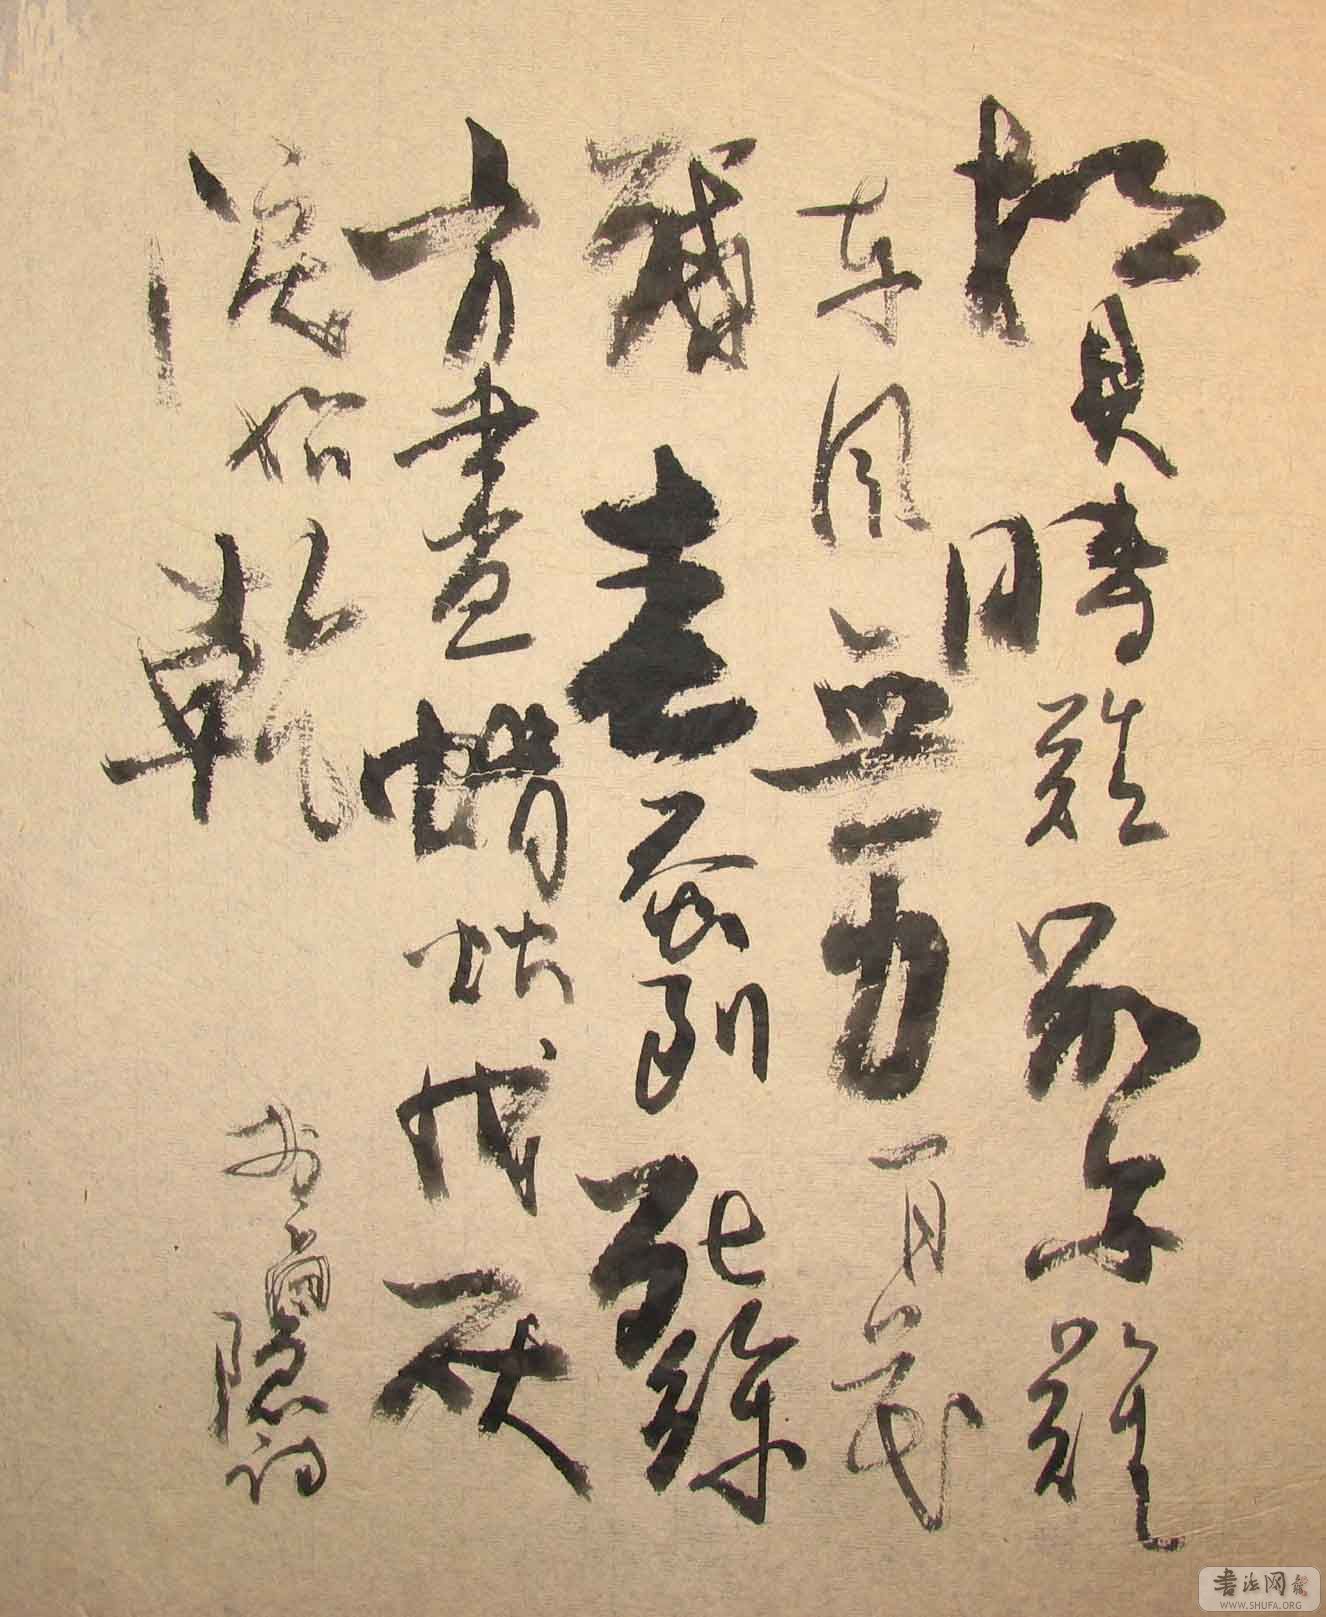 相見時難別亦難
東風無力百花
殘春蚕到死絲
方盡蠟炬成灰
淚始乾
李商隱詩
書法网
WWW.SHUFA.ORG